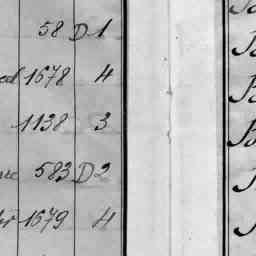 58 D 1
1678 4
1138 3
583 D 2
1679 4